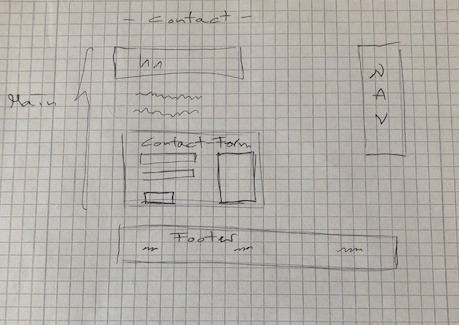 - Contact -
Main
NAV
Contact-Form
Footer